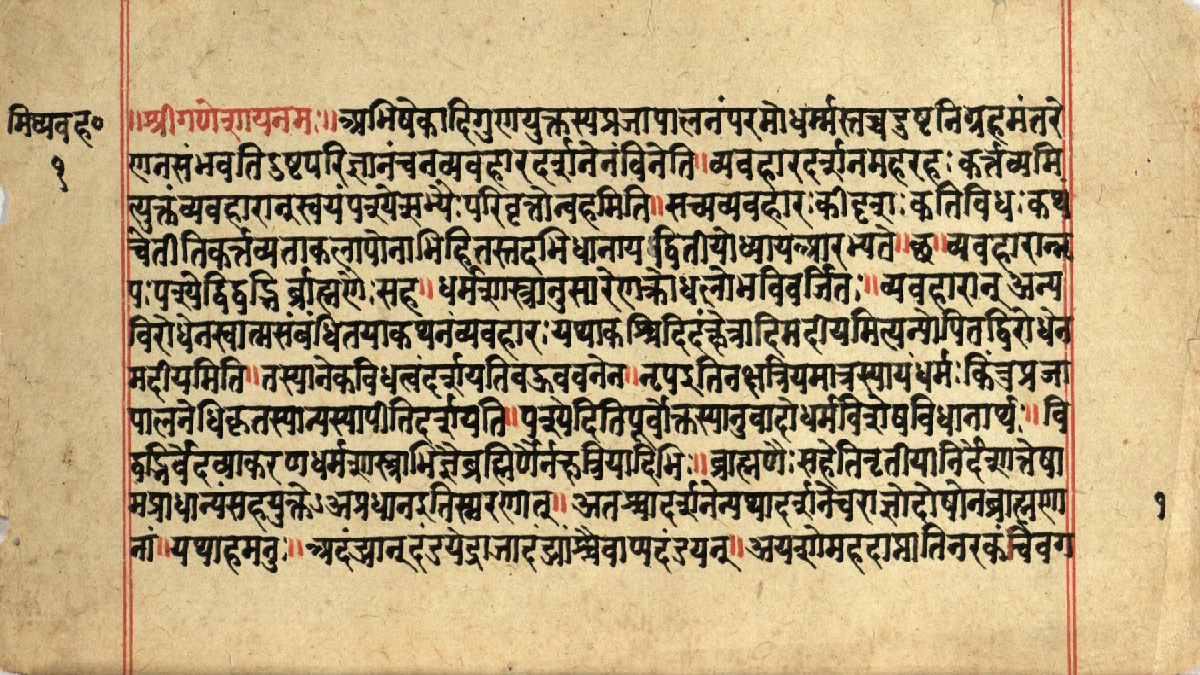 मिव्यवह॰
१
॥श्रीगणेशायनमः॥अभिषेकादिगुणयुक्तस्यप्रजापालनंपरमोधर्म्मस्तच्चदुष्टनिग्रहमंतरे
णनसंभवतिदुष्टपरिज्ञानंचनव्यवहारदर्शनेनंविनेति॥व्यवहारदर्शनमहरहःकर्त्तव्यमि
त्युक्तंव्यवहारान्स्वयंपश्येत्सभ्यैःपरिवृत्तोन्वहमिति॥सचव्यवहारःकीदृशःकतिविधःकथं
चेतीतिकर्त्तव्यताकलापोनाभिहितस्तदभिधानाय द्वितीयोध्यायआरभ्यते॥छ॥व्यवहारान्नृ
पःपश्येद्विद्वद्भिर्ब्राह्मणैःसह॥धर्मशास्त्रानुसारेणक्रोधलोभविवर्जितः॥व्यवहारान् अन्य
विरोधेनस्वात्मसंबंधितयाकथनंव्यवहारःयथाकश्चिदिदंक्षेत्रादिमदीयमित्यन्योपितद्विरोधेन
मदीयमिति॥तस्यानेकविधत्वंदर्शयतिबहुवचनेन॥नृपइतिनक्षत्रियमात्रस्यायंधर्मःकिंतुप्रजा
पालनेधिकृतस्यान्यस्यापीतिदर्शयति॥पश्येदितिपूर्वोक्तस्यानुवादोधर्मविशेषविधानार्थः॥वि
द्वद्भिर्वेदव्याकरणधर्मशास्त्राभिज्ञैर्ब्राह्मणैर्नक्षत्रियादिभिः॥ब्राह्मणैःसहेतितृतीयानिर्देशात्तेषा
मप्राधान्यंसहयुक्तेऽअप्रधानइतिस्मरणात्॥अतश्चादर्शनेन्यथादर्शनेचराज्ञोदोषोनब्राह्मणा
नां॥यथाहमनुः॥अदंड्यान्दंडयेद्राजादंड्यांश्चैवाप्यदंडयन्॥अयशोमहदाप्नोतिनरकंचैवग
१